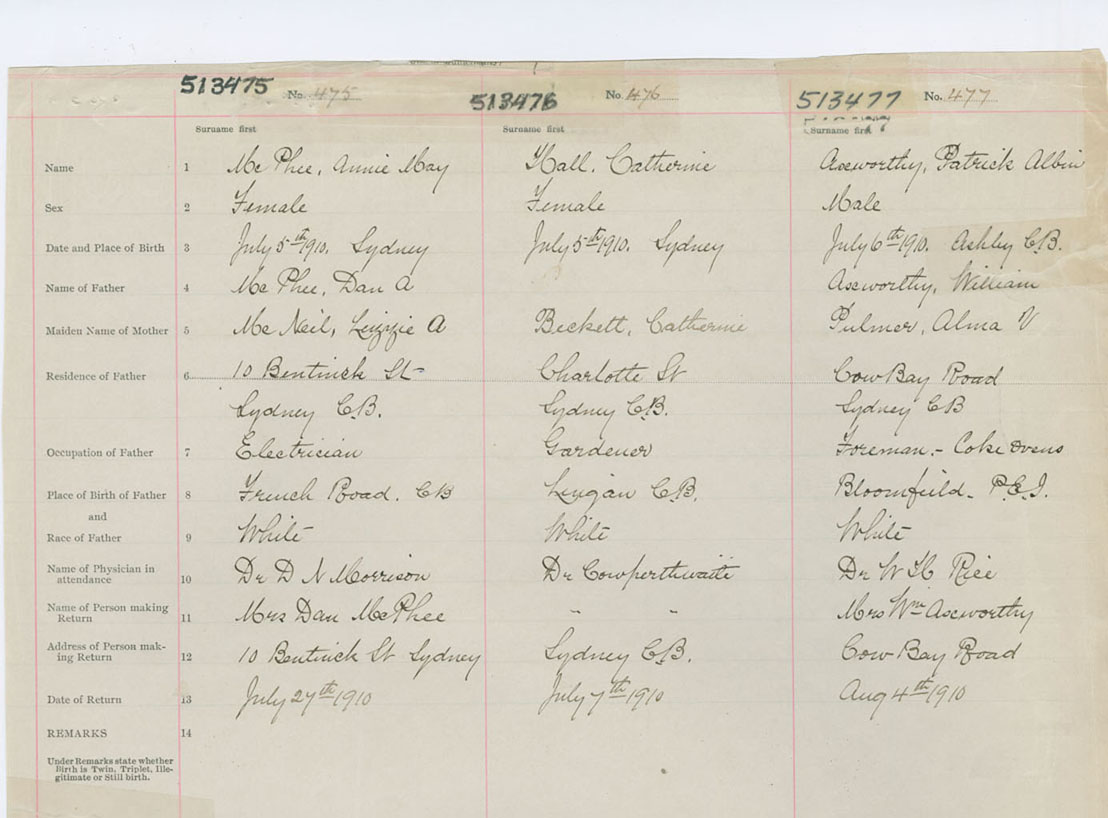 513475 No. 475 513476 No. 476 513477 No. 477
Surname first Surname first Surname first
Name 1 Mc Phee, Annie May Hall, Catherine Aseworthy, Patrick Albin
Sex 2 Female Female Male
Date and Place of Birth 3 July 5th 1910. Sydney July 5th 1910. Sydney July 6th 1910. Ashley C.B.
Name of Father 4 Mc Phee, Dan A Aseworthy, William
Maiden Name of Mother 5 Mc Neil, Lizzie A Beckett, Catherine Pulmer, Alma V
Residence of Father 6 10 Bentinck St Charlotte St Cow Bay Road
Sydney C.B. Sydney C.B. Sydney C B
Occupation of Father 7 Electrician Gardener Foreman - Coke ovens
Place of Birth of Father 8 French Road. C B Lingan C.B. Bloomfield - P.E.I.
and
Race of Father 9 White White White
Name of Physician in
attendance 10 Dr D N Morrison Dr Cowperthwaite Dr W H Rice
Name of Person making
Return 11 Mrs Dan McPhee " " Mrs Wm Aseworthy
Address of Person mak-
ing Return 12 10 Bentinck St Sydney Sydney C.B. Cow Bay Road
Date of Return 13 July 27th 1910 July 7th 1910 Aug 4th 1910
REMARKS 14
Under Remarks state whether
Birth is Twin, Triplet, Ille-
gitimate or Still birth.